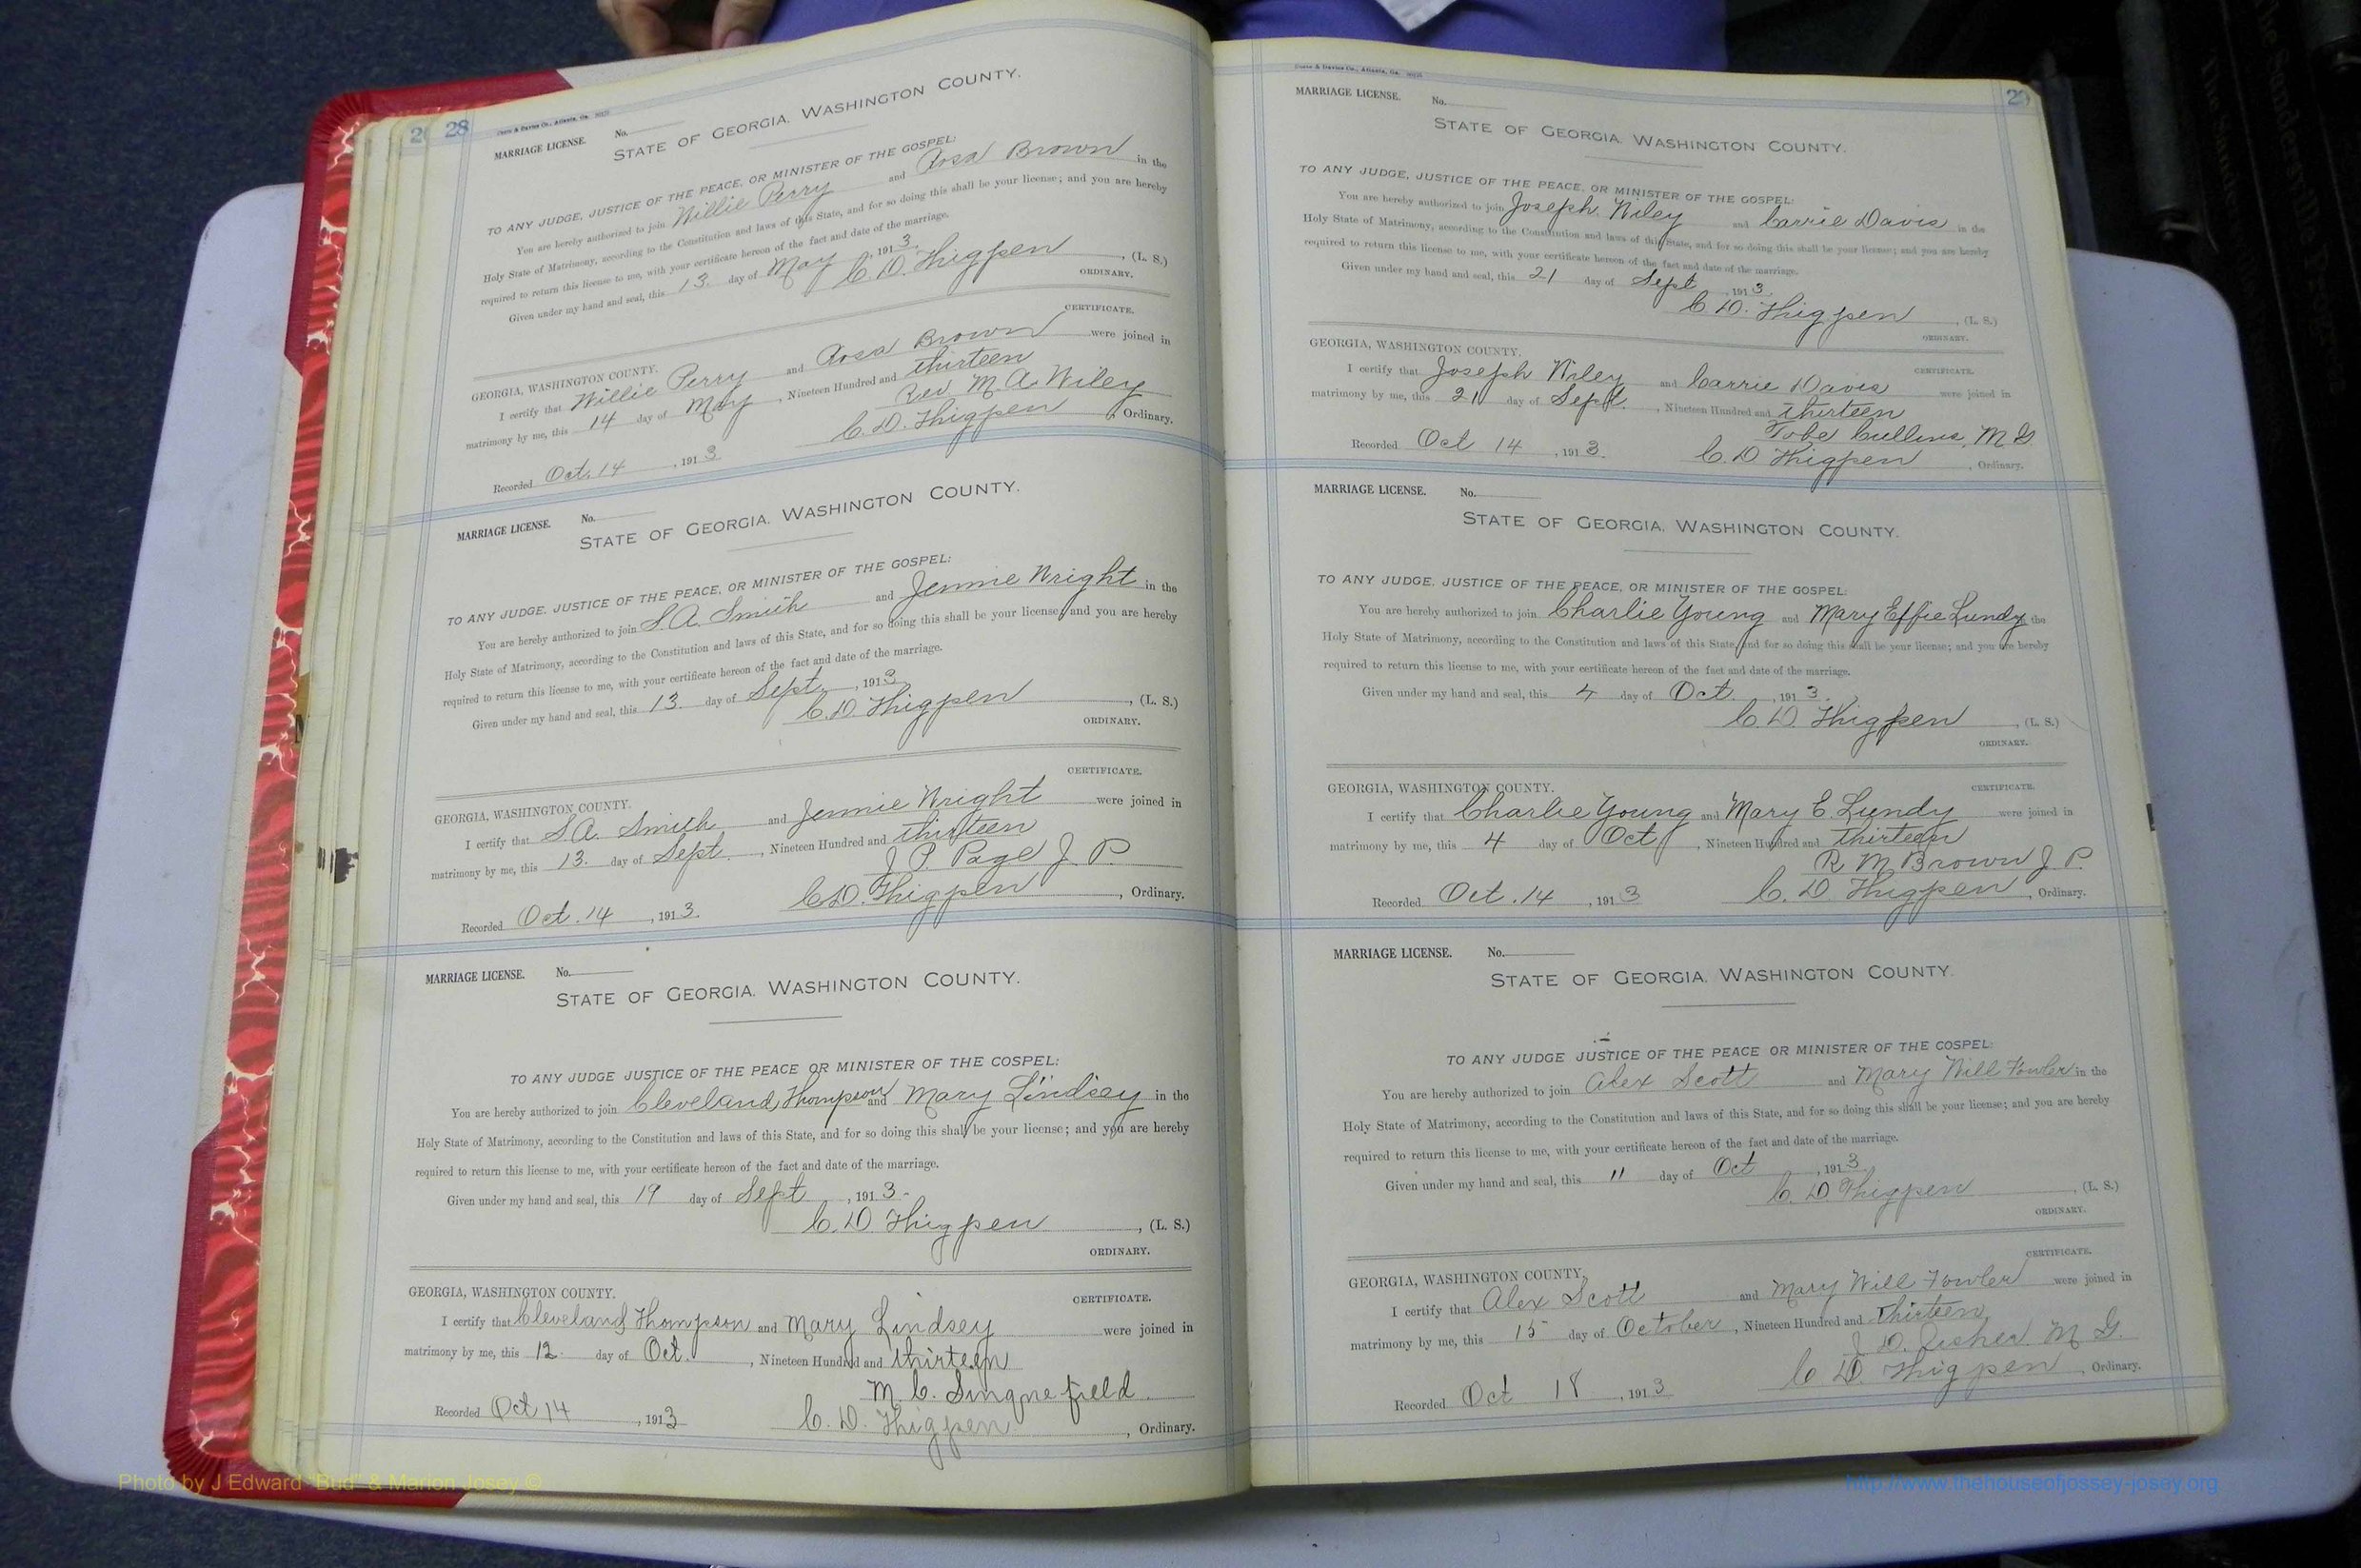 28
Foote & Davies Co., Atlanta, Ga.
MARRIAGE LICENSE. No.
STATE OF GEORGIA. WASHINGTON COUNTY.
TO ANY JUDGE, JUSTICE OF THE PEACE, OR MINISTER OF THE GOSPEL:
You are hereby authorized to join Willie Perry and Rosa Brown in the
Holy State of Matrimony, according to the Constitution and laws of this State, and for so doing this shall be your license; and you are hereby
required to return this license to me, with your certificate hereon of the fact and date of the marriage.
Given under my hand and seal, this 13 day of May, 1913.
C. D. Thigpen, (L. S.)
ORDINARY.
CERTIFICATE.
GEORGIA, WASHINGTON COUNTY.
I certify that Willie Perry and Rosa Brown were joined in
matrimony by me, this 14 day of May, Nineteen Hundred and thirteen
Rev M. A. Wiley
Recorded Oct. 14, 1913 C. D. Thigpen Ordinary.
MARRIAGE LICENSE. No.
STATE OF GEORGIA. WASHINGTON COUNTY.
TO ANY JUDGE, JUSTICE OF THE PEACE, OR MINISTER OF THE GOSPEL:
You are hereby authorized to join S. A. Smith and Jennie Wright in the
Holy State of Matrimony, according to the Constitution and laws of this State, and for so doing this shall be your license; and you are hereby
required to return this license to me, with your certificate hereon of the fact and date of the marriage.
Given under my hand and seal, this 13 day of Sept., 1913
C. D. Thigpen, (L. S.)
ORDINARY.
CERTIFICATE.
GEORGIA, WASHINGTON COUNTY.
I certify that S. A. Smith and Jennie Wright were joined in
matrimony by me, this 13. day of Sept., Nineteen Hundred and thirteen
J. P. Page J. P.
Recorded Oct. 14, 1913. C. D. Thigpen, Ordinary.
MARRIAGE LICENSE. No.
STATE OF GEORGIA. WASHINGTON COUNTY.
TO ANY JUDGE JUSTICE OF THE PEACE OR MINISTER OF THE GOSPEL:
You are hereby authorized to join Cleveland Thompson and Mary Lindsey in the
Holy State of Matrimony, according to the Constitution and laws of this State, and for so doing this shall be your license; and you are hereby
required to return this license to me, with your certificate hereon of the fact and date of the marriage.
Given under my hand and seal, this 19 day of Sept, 1913.
C. D. Thigpen, (L. S.)
ORDINARY.
CERTIFICATE.
GEORGIA, WASHINGTON COUNTY.
I certify that Cleveland Thompson and Mary Lindsey were joined in
matrimony by me, this 12. day of Oct., Nineteen Hundred and thirteen
M. C. Singnefield
Recorded Oct 14, 1913 C. D. Thigpen, Ordinary.
Foote & Davies Co., Atlanta, Ga.
29
MARRIAGE LICENSE. No.
STATE OF GEORGIA. WASHINGTON COUNTY.
TO ANY JUDGE, JUSTICE OF THE PEACE, OR MINISTER OF THE GOSPEL:
You are hereby authorized to join Joseph Wiley and Carrie Davis in the
Holy State of Matrimony, according to the Constitution and laws of this State, and for so doing this shall be your license; and you are hereby
required to return this license to me, with your certificate hereon of the fact and date of the marriage.
Given under my hand and seal, this 21 day of Sept, 1913.
C. D. Thigpen, (L. S.)
ORDINARY.
GEORGIA, WASHINGTON COUNTY.
CERTIFICATE.
I certify that Joseph Wiley and Carrie Davis were joined in
matrimony by me, this 21 day of Sept., Nineteen Hundred and thirteen
Tobe Cullens, M. G.
Recorded Oct 14, 1913. C. D Thigpen, Ordinary.
MARRIAGE LICENSE. No.
STATE OF GEORGIA. WASHINGTON COUNTY.
TO ANY JUDGE, JUSTICE OF THE PEACE, OR MINISTER OF THE GOSPEL:
You are hereby authorized to join Charlie Young and Mary Effie Lundy the
Holy State of Matrimony, according to the Constitution and laws of this State, and for so doing this shall be your license; and you are hereby
required to return this license to me, with your certificate hereon of the fact and date of the marriage.
Given under my hand and seal, this 4 day of Oct., 1913.
C. D. Thigpen, (L. S.)
ORDINARY.
CERTIFICATE.
GEORGIA, WASHINGTON COUNTY.
I certify that Charlie Young and Mary E. Lundy were joined in
matrimony by me, this 4 day of Oct, Nineteen Hundred and Thirteen
R. M. Brown J. P.
Recorded Oct. 14, 1913 C. D Thigpen, Ordinary.
MARRIAGE LICENSE. No.
STATE OF GEORGIA. WASHINGTON COUNTY.
TO ANY JUDGE JUSTICE OF THE PEACE OR MINISTER OF THE GOSPEL:
You are hereby authorized to join Alex Scott and Mary Will Fowler in the
Holy State of Matrimony, according to the Constitution and laws of this State, and for so doing this shall be your license; and you are hereby
required to return this license to me, with your certificate hereon of the fact and date of the marriage.
Given under my hand and seal, this 11 day of Oct, 1913
C. D. Thigpen, (L. S.)
ORDINARY.
CERTIFICATE.
GEORGIA, WASHINGTON COUNTY.
I certify that Alex Scott and Mary Will Fowler were joined in
matrimony by me, this 15 day of October, Nineteen Hundred and Thirteen
J. D. Fisher M. G.
Recorded Oct 18, 1913 C. D. Thigpen, Ordinary.
Photo by J Edward "Bud" & Marion Josey ©
http://www.thehouseofjossey-josey.org